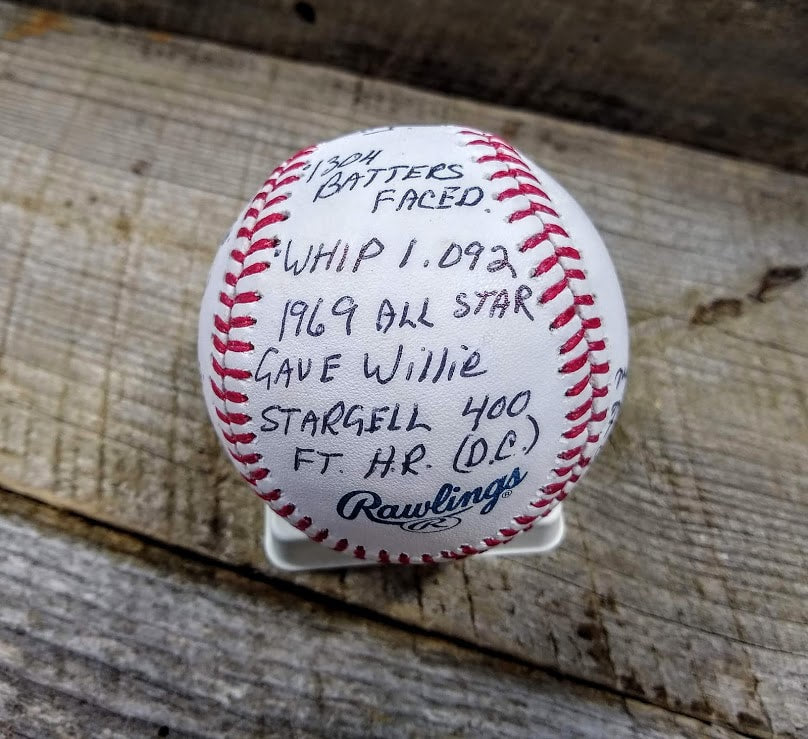 ·1304
BATTERS
FACED.
·WHIP 1.092
1969 ALL STAR
GAVE Willie
STARGELL 400
FT. H.R. (D.C.)
Rawlings®
R